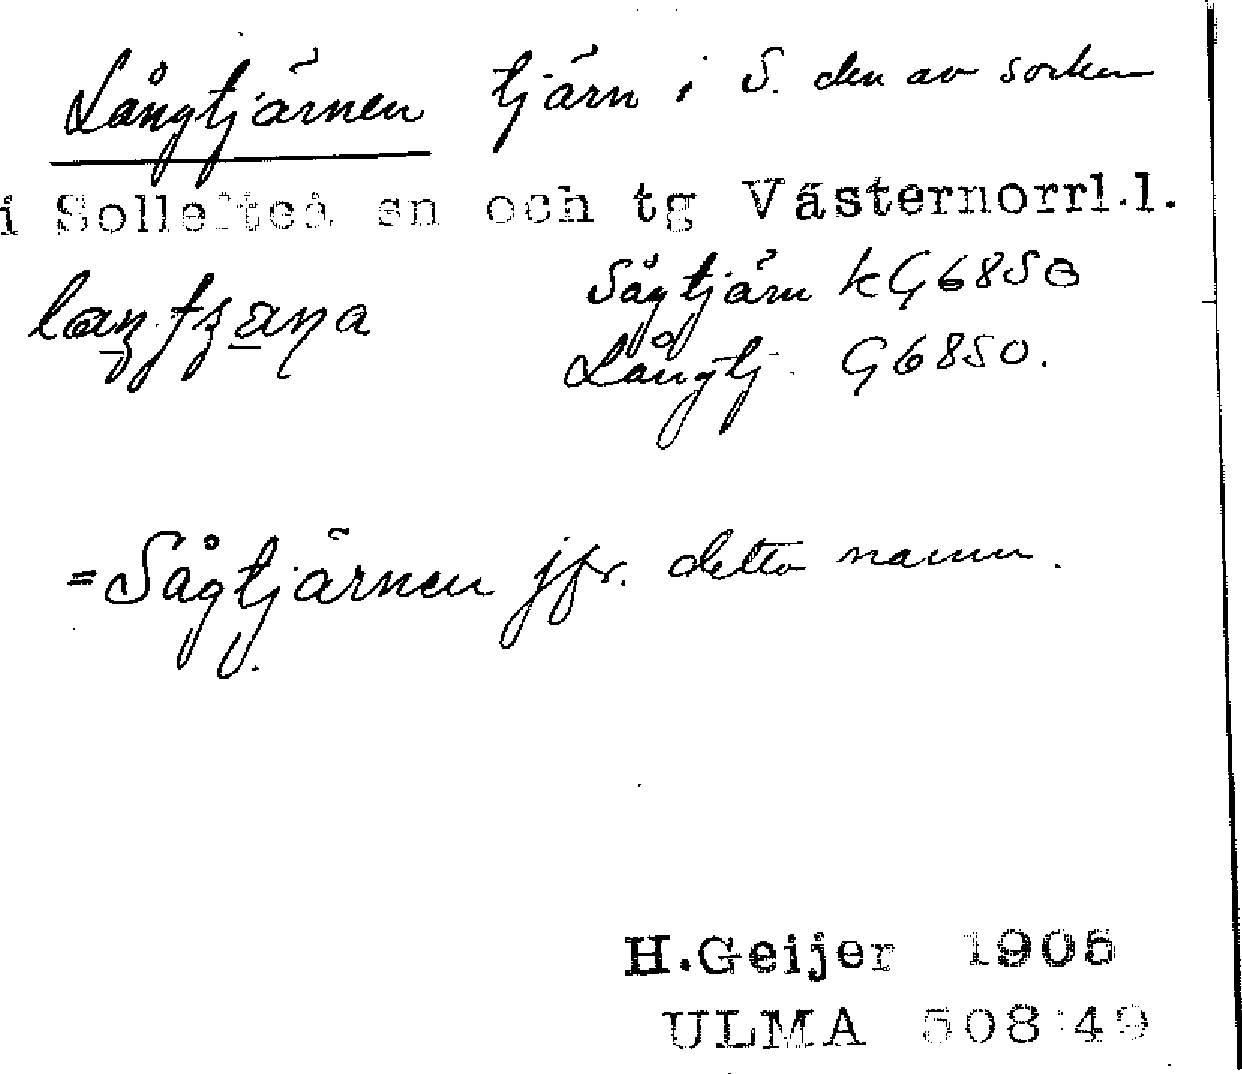 Långtjärnen tjärn i S. den av socken
i Sollefteå sn och tg Västernorrl.l.
Sågtjärn kG6850
Långtj. G6850.
=Sågtjärnen jfr. detta namn.
H.Geijer 1905
ULMA 508:49